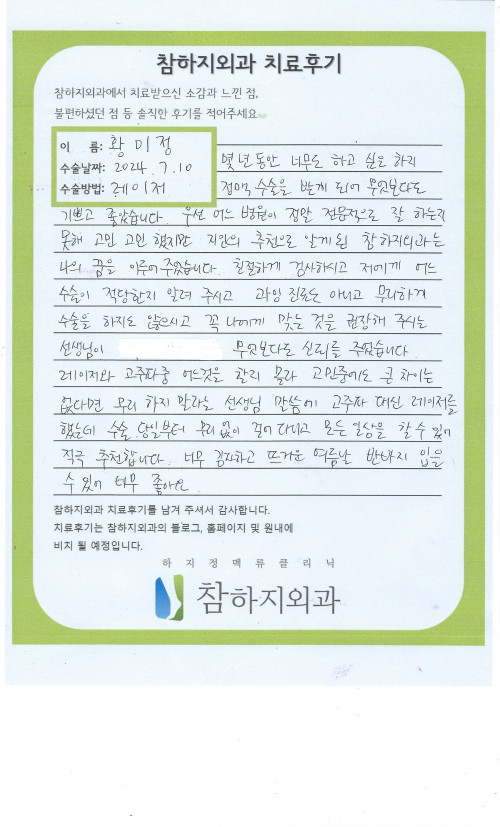 참하지외과 치료후기
참하지외과에서 치료받으신 소감과 느낀 점,
불편하셨던 점 등 솔직한 후기를 적어주세요.
이 름: 황미정
수술날짜: 2024. 7. 10
수술방법: 레이저
몇년동안 너무도 하고 싶은 하지
정맥 수술을 받게 되어 무엇보다도
기쁘고 좋았습니다. 우선 어느 병원이 정말 전문적으로 잘 하는지
못해 고민 고민 했지만 지인의 추천으로 알게된 참하지외과는
나의 꿈을 이루어주었습니다. 친절하게 검사하시고 저에게 어느
수술이 적당한지 알려 주시고 과잉 진료는 아니고 무리하게
수술을 하지도 않으시고 꼭 나에게 맞는 것을 권장해 주시는
선생님이 무엇보다도 신뢰를 주었습니다.
레이저와 고주파중 어느것을 할지 몰라 고민중에도 큰 차이는
없다면 무리 하지 말라는 선생님 말씀에 고주파 대신 레이저를
했는데 수술 당일부터 무리없이 걸어 다니고 모든 일상을 할 수 있어
적극 추천합니다. 너무 감사하고 뜨거운 여름날 반바지 입을
수 있어 너무 좋아요
참하지외과 치료후기를 남겨 주셔서 감사합니다.
치료후기는 참하지외과의 블로그, 홈페이지 및 원내에
비치 될 예정입니다.
하지정맥류클리닉
참하지외과